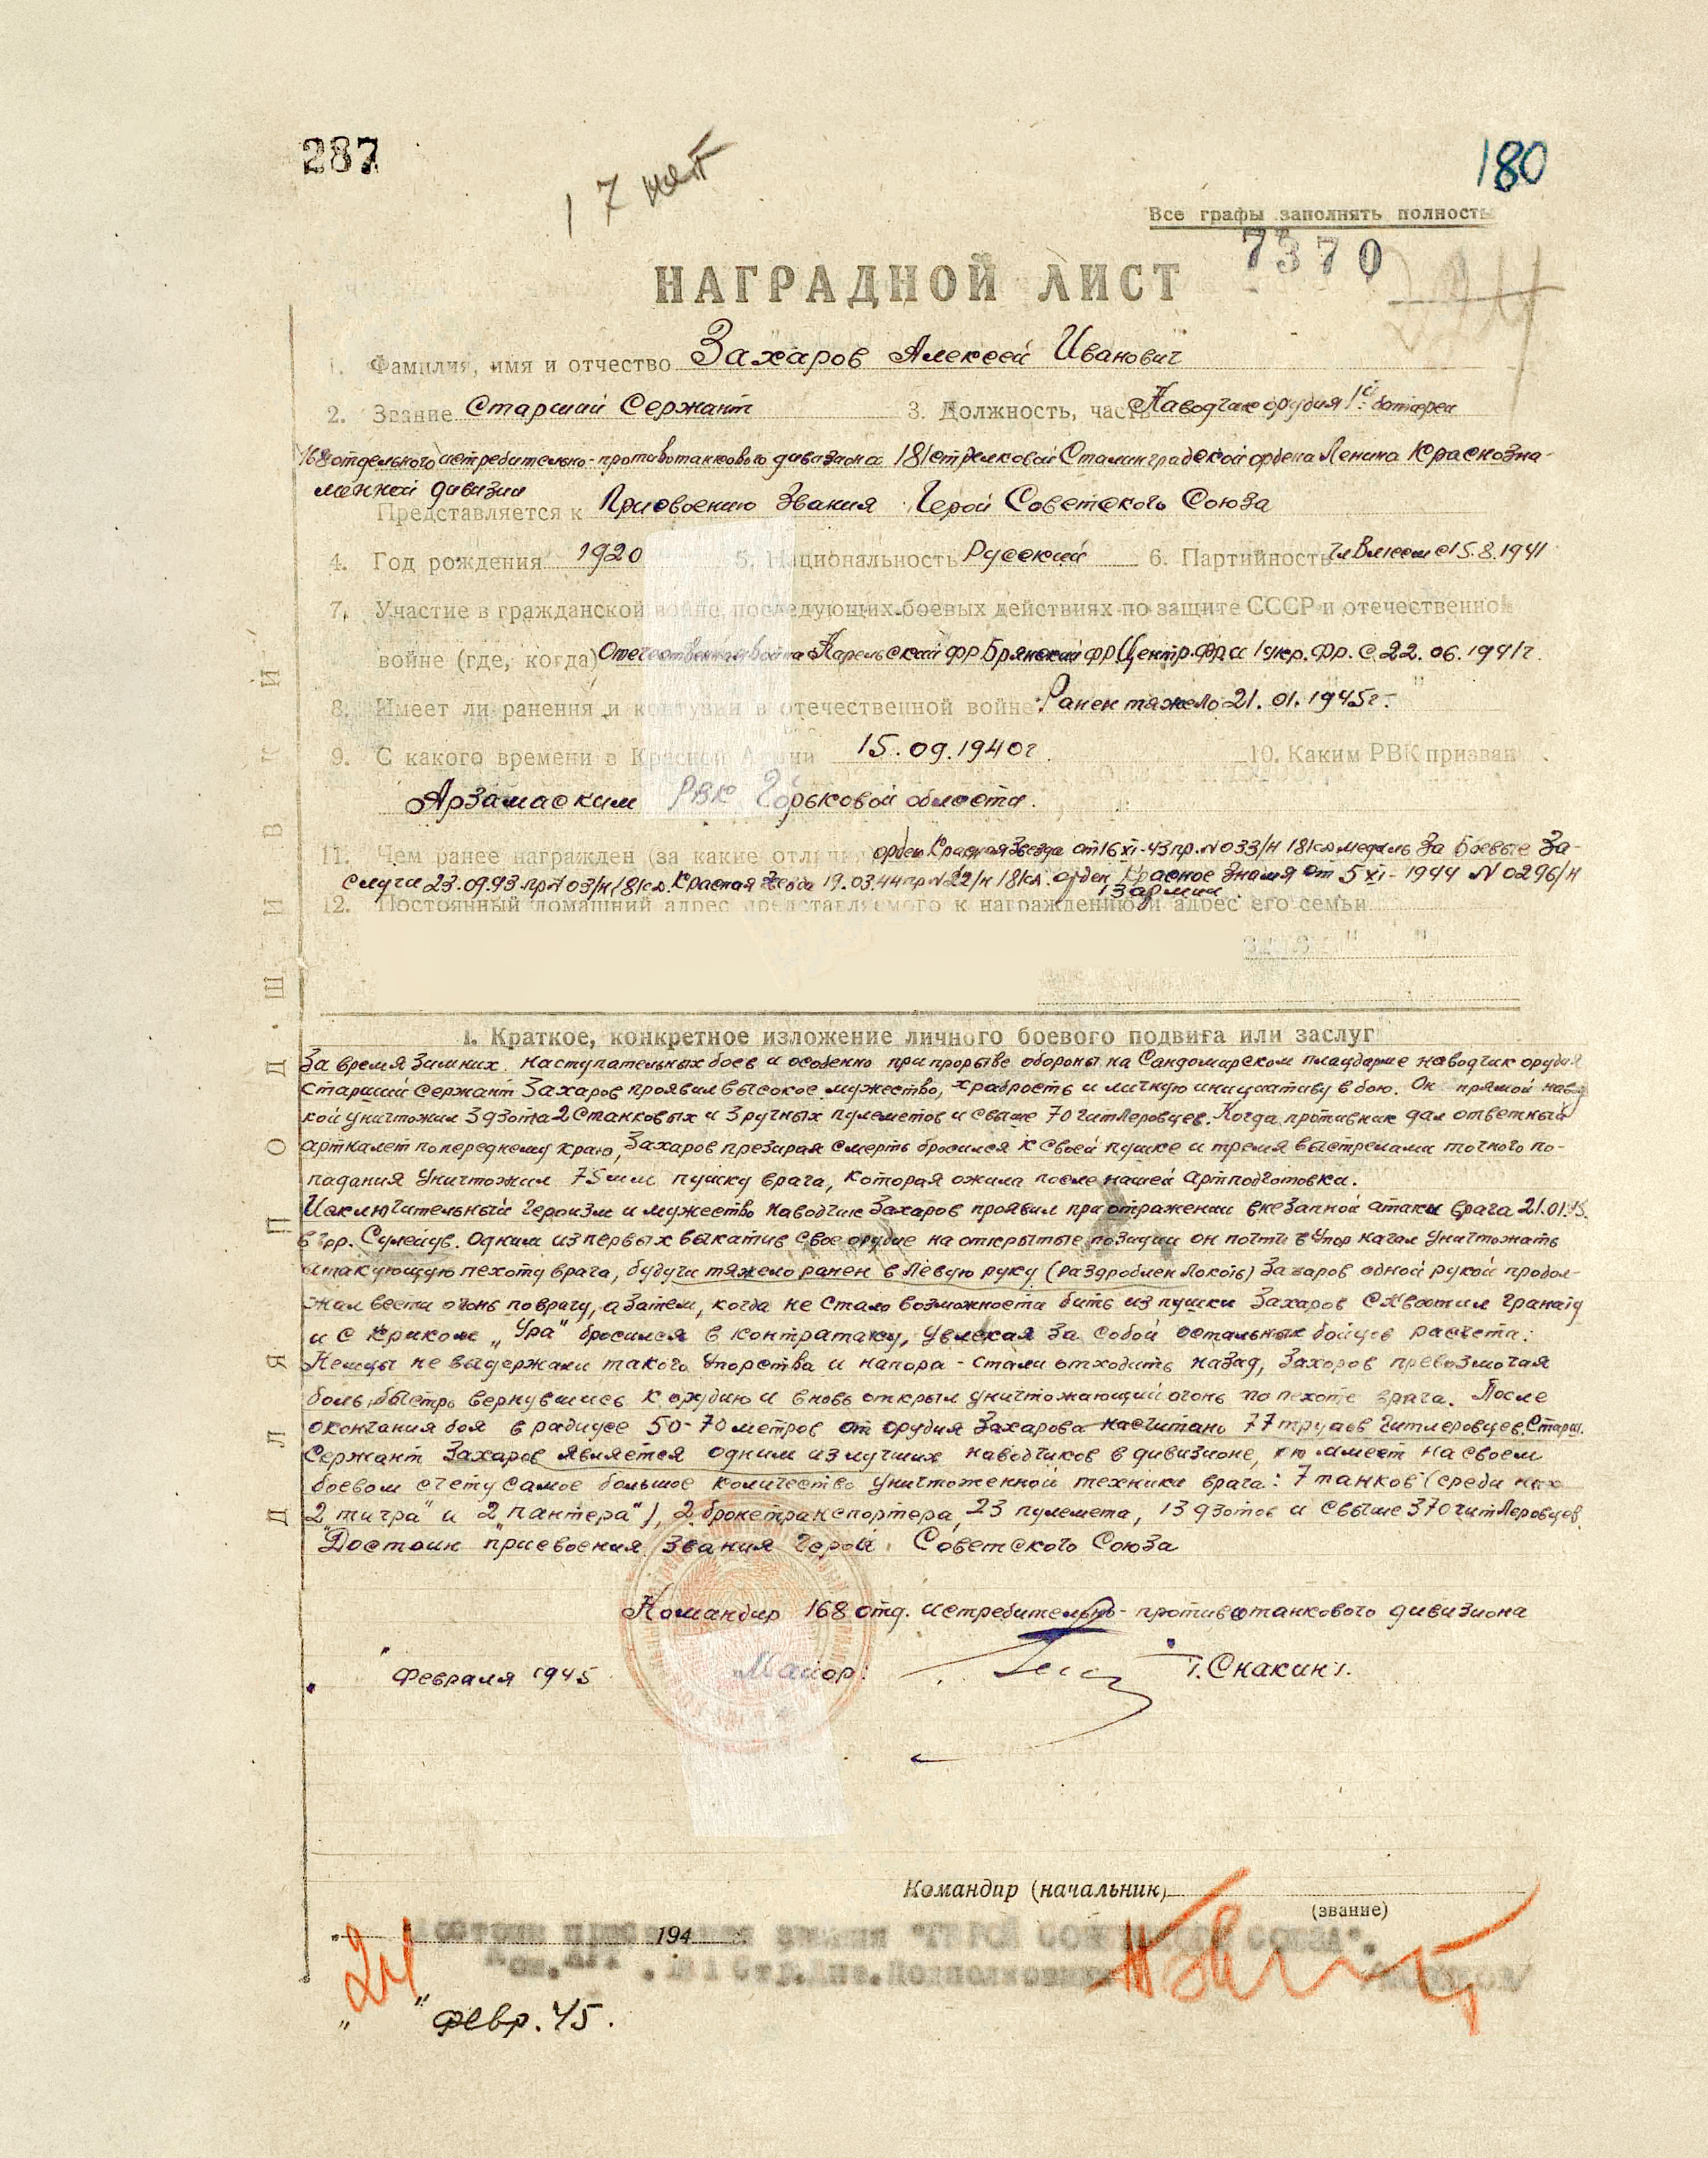 287
180
17 нет
Все графы заполнять полность
7370
НАГРАДНОЙ ЛИСТ
1. Фамилия, имя и отчество Захаров Алексей Иванович
2. Звание Старший Сержант 3. Должность, часть Наводчик орудия 1й батареи
168 отдельного истребительно-противотанкового дивизиона 181 стрелковой Сталинградской ордена Ленина Краснозна-
менной дивизии
Представляется к Присвоению Звания Герой Советского Союза
4. Год рождения 1920 5. Национальность Русский 6. Партийность чл Влксм с 15.8.1941
7. Участие в гражданской войне, последующих боевых действиях по защите СССР и отечественной
войне (где, когда) Отечественная война Карельский фр Брянский фр Центр. фр. и 1 укр. фр. с 22.06.1941г.
8. Имеет ли ранения и контузии в отечественной войне Ранен тяжело 21.01.1945г.
9. С какого времени в Красной Армии 15.09.1940г 10. Каким РВК призван
Арзамаским РВК Горьковой области.
11. Чем ранее награжден (за какие отличия орден Красная Звезда от 16 XI-43 пр. N 033/н 181сд медаль За Боевые За-
слуги 23.09.93 пр N 03/н/8/сд. Красная Звезда 19.03.44 пр N 22/н 181сд. орден Красное Знамя от 5 XI-1944 N 0296/н
13 армии
12. Постоянный домашний адрес представляемого к награждению и адрес его семьи
1. Краткое, конкретное изложение личного боевого подвига или заслуг
За время Зимних наступательных боев и особенно при прорыве обороны на Сандомирском плацдарме наводчик орудия
старший сержант Захаров проявил высокое мужество, храбрость и личную инициативу в бою. Он прямой навод
кой уничтожил 3 дзота 2 станковых и 3 ручных пулеметов и свыше 70 гитлеровцев. Когда противник дал ответный
артналет по переднему краю, Захаров презирая смерть бросился к своей пушке и тремя выстрелами точного по-
падания Уничтожил 75мм пушку врага, которая ожила после нашей артподготовки.
Исключительный героизм и мужество наводчик Захаров проявил при отражении внезапной атаки врага 21.01.45.
в гор. Сулейув. Одним из первых выкатив свое орудие на открытые позиции он почти в Упор начал Уничтожать
атакующую пехоту врага, будучи тяжело ранен в левую руку (раздроблен локоть) Захаров одной рукой продол-
жал вести огонь по врагу, а затем, когда не стало возможности бить из пушки Захаров схватил гранату
и с криком „Ура" бросился в контратаку, увлекая за собой остальных бойцов расчета.
Немцы не выдержали такого упорства и напора - стали отходить назад, Захаров превозмогая
боль, быстро вернувшись к орудию и вновь открыл уничтожающий огонь по пехоте врага. После
окончания боя в радиусе 50-70 метров от орудия Захарова насчитано 77 трупов Гитлеровцев. Старш.
Сержант Захаров является одним из лучших наводчиков в дивизионе, имеет на своем
боевом счету самое большое количество Уничтоженной техники врага: 7 танков (среди них
2 „тигра" и 2 „пантера"), 2 бронетранспортера, 23 пулемета, 13 дзотов и свыше 370 гитлеровцев.
Достоин присвоения звания Герой Советского Союза
Командир 168 отд. истребительно-противотанкового дивизиона
" Февраля 1945 Майор: /Снакин/.
Командир (начальник)
(звание)
194
Достоин присвоения звания "ГЕРОЙ СОВЕТСКОГО СОЮЗА".
181 Стр.Див. Подполковник
„24" февр. 45.
ДЛЯ ПОДШИВКИ